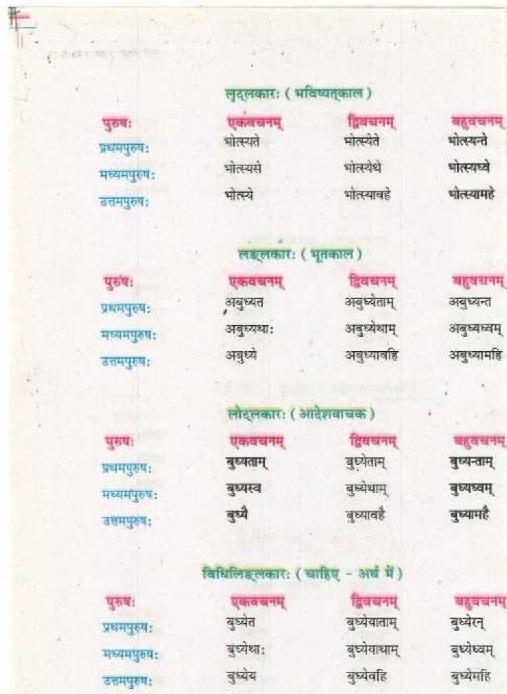 लृट्लकारः ( भविष्यत्काल )
पुरुषः एकवचनम् द्विवचनम् बहुवचनम्
प्रथमपुरुषः भोत्स्यते भोत्स्येते भोत्स्यन्ते
मध्यमपुरुषः भोत्स्यसे भोत्स्येथे भोत्स्यध्वे
उत्तमपुरुषः भोत्स्ये भोत्स्यावहे भोत्स्यामहे
लङ्लकारः ( भूतकाल )
पुरुषः एकवचनम् द्विवचनम् बहुवचनम्
प्रथमपुरुषः अबुध्यत अबुध्येताम् अबुध्यन्त
मध्यमपुरुषः अबुध्यथाः अबुध्येथाम् अबुध्यध्वम्
उत्तमपुरुषः अबुध्ये अबुध्यावहि अबुध्यामहि
लोट्लकारः ( आदेशवाचक )
पुरुषः एकवचनम् द्विवचनम् बहुवचनम्
प्रथमपुरुषः बुध्यताम् बुध्येताम् बुध्यन्ताम्
मध्यमपुरुषः बुध्यस्व बुध्येथाम् बुध्यध्वम्
उत्तमपुरुषः बुध्यै बुध्यावहै बुध्यामहै
विधिलिङ्लकारः ( चाहिए - अर्थ में )
पुरुषः एकवचनम् द्विवचनम् बहुवचनम्
प्रथमपुरुषः बुध्येत बुध्येयाताम् बुध्येरन्
मध्यमपुरुषः बुध्येथाः बुध्येयाथाम् बुध्येध्वम्
उत्तमपुरुषः बुध्येय बुध्येवहि बुध्येमहि